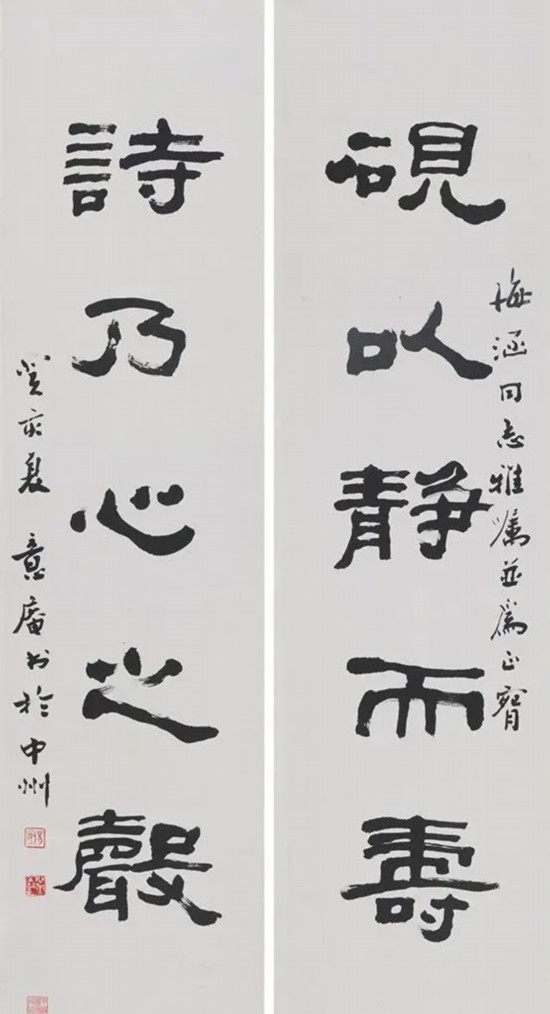 硯以静而壽
梅涵同志雅嘱並為正寶
詩乃心之聲
癸亥夏 意庵书於中州